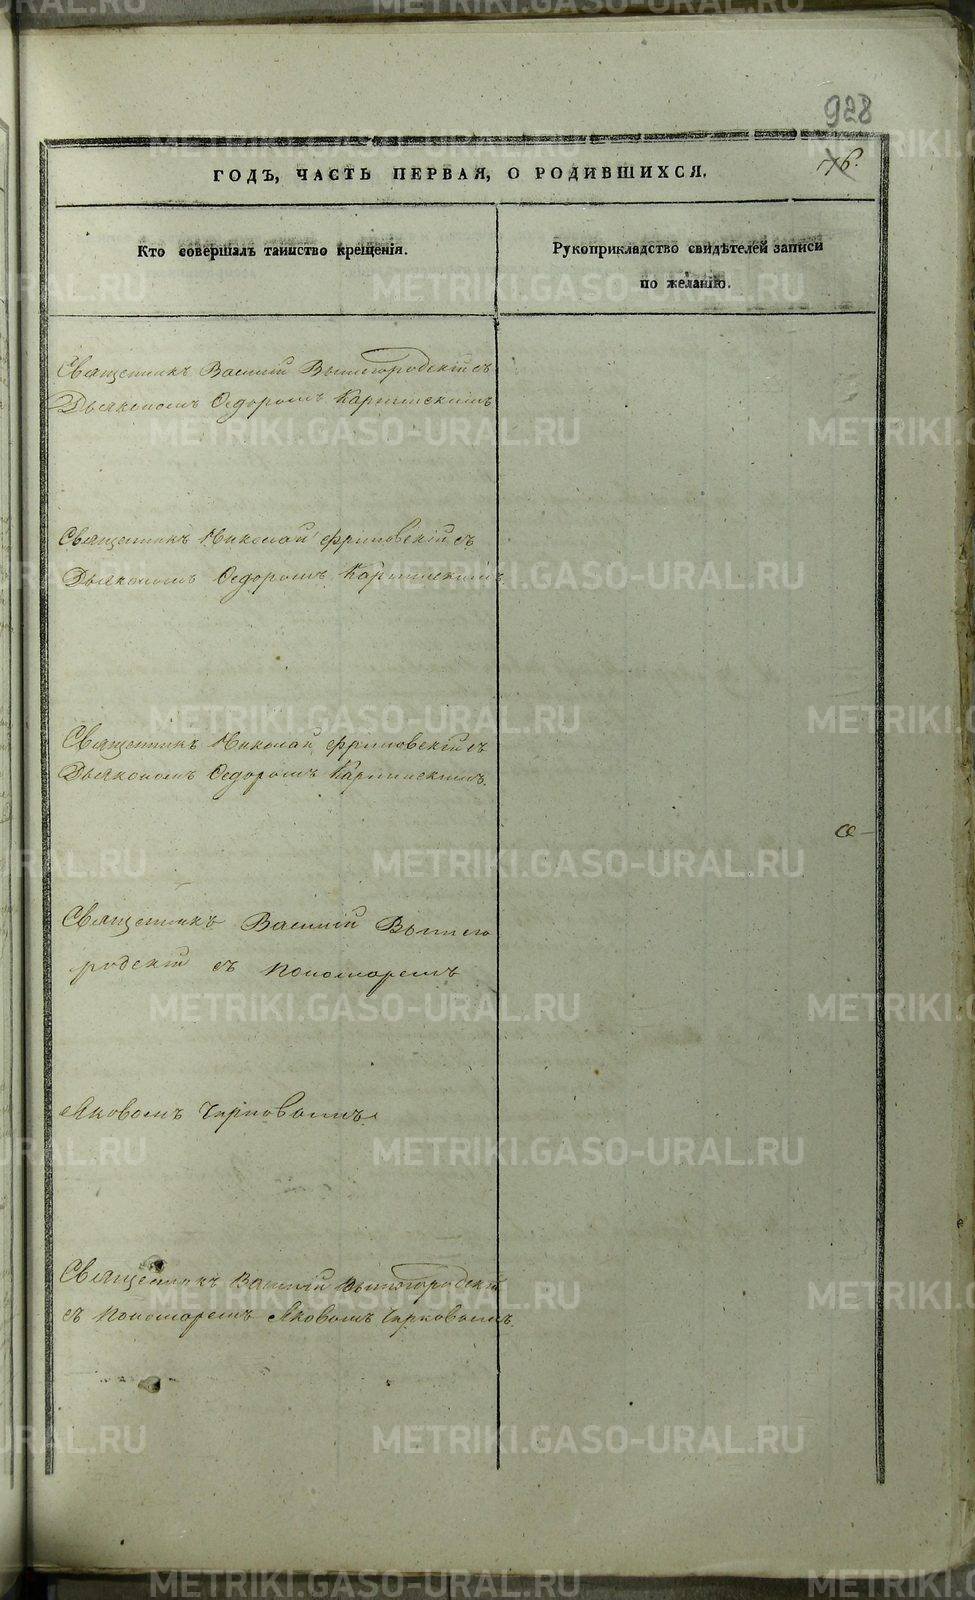 928
76.
ГОДЪ, ЧАСТЬ ПЕРВАЯ, О РОДИВШИХСЯ.
Кто совершалъ таинство крещенія.
Рукоприкладство свидѣтелей записи
по желанію.
Священникъ Василій Вышегородскій съ
Дьякономъ Ѳедоромъ Карпинскимъ
Священникъ Николай Фриновскій съ
Дьякономъ Ѳедоромъ Карпинскимъ
Священникъ Николай Фриновскій съ
Дьякономъ Ѳедоромъ Карпинскимъ.
Священникъ Василій Вышего
родскій съ Пономаремъ
Яковомъ Чирковымъ
Священникъ Василій Вышегородскій
съ Пономаремъ Яковомъ Чирковымъ.
METRIKI.GASO-URAL.RU